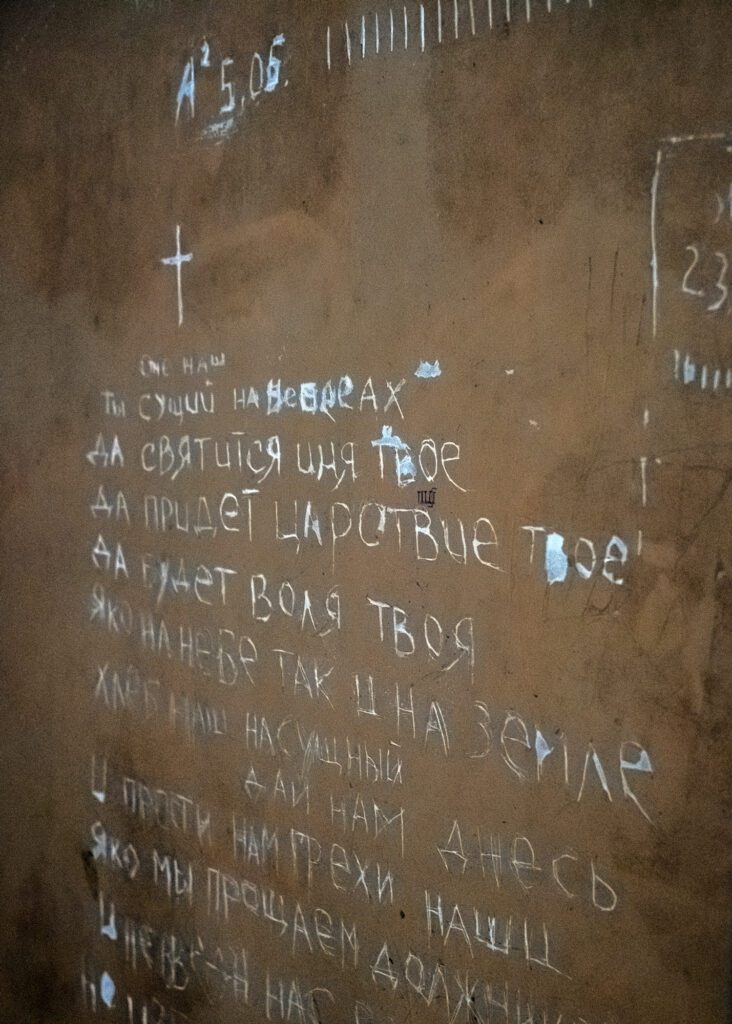 А² 5.06.
23
ОЧЕ НАШ
ТЫ СУЩИЙ НА НЕБРЕАХ
ДА СВЯТИТСЯ ИМЯ ТВОЕ
ДА ПРИДЕТ ЦАРСТВИЕ ТВОЕ
ДА БУДЕТ ВОЛЯ ТВОЯ
ЯКО НА НЕБЕ ТАК И НА ЗЕМЛЕ
ХЛЕБ НАШ НАСУЩНЫЙ
ДАЙ НАМ ДНЕСЬ
И ПРОСТИ НАМ ГРЕХИ НАШИ
ЯКО МЫ ПРОЩАЕМ
И НЕ НАС
НО